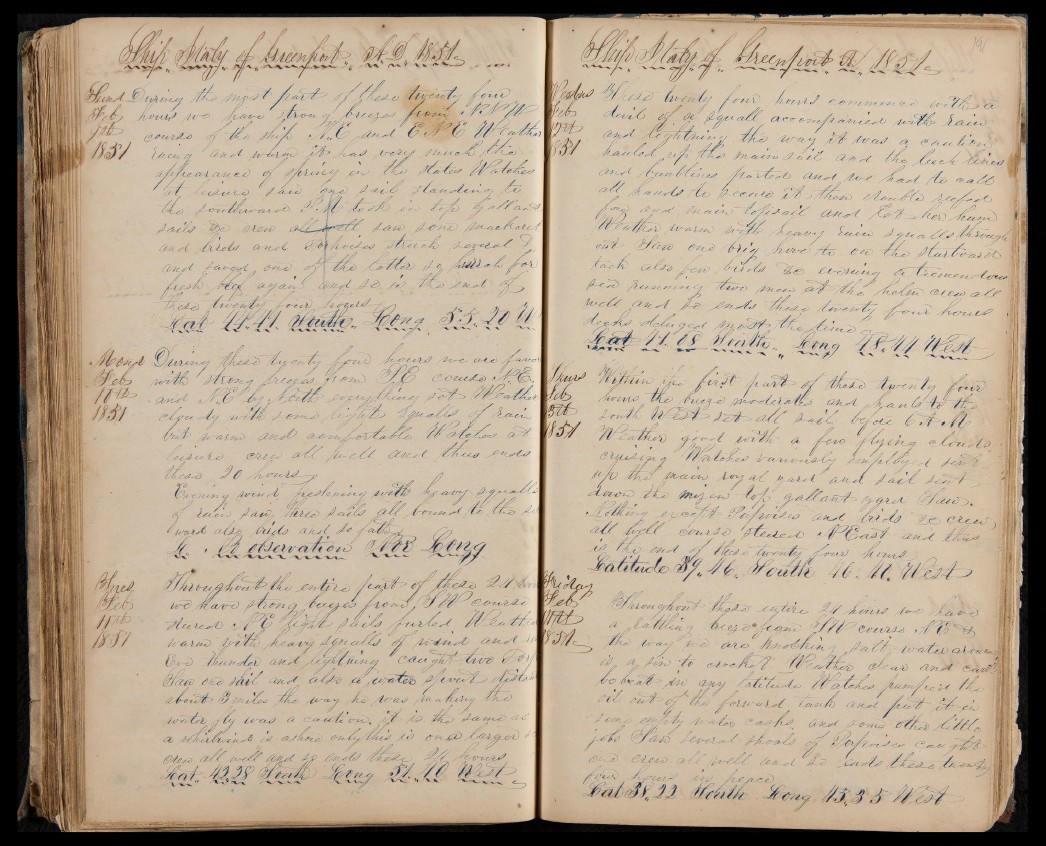 Ship Italy of Greenport A.D. 1851
Sund During the most part of these twenty four
Feb hours we have strong breezes from N N W
9th course of the ship N.E and E.N.E Weather
1851 rainy and warm it has very much the
appearance of spring in the States Watches
at leisure saw one sail standing to
the southward P.M took in top gallant
sails crew all well saw some mackarel
and birds and Porpoises struck several
and saved one of the latter so for
fresh again and so is the end of
these twenty four hours
Lat 44.41 South Long 55.20 W
Mond During these twenty four hours we are favor
Feb with strong breezes from S.E course N.E.
10th and N.E by North everything set Weather
1851 cloudy with some light squalls of rain
but warm and comfortable Watches at
leisure crew all well and thus ends
these 20 hours
Evening wind freshening with heavy squalls
of rain saw three sails all bound to the
ward also birds and so forth
No observation for Long
Tues Throughout the entire part of these 24
Feb we have strong breezes from SW course
11th steered N.E light sails furled Weather
1851 warm with heavy squalls of wind and
Eve thunder and lightning caught two
Saw one sail and also a water spout distan
about 3 miles the way he was making the
water fly was a caution it is the same as
a whirlwind is ashore only this is on a larger
crew all well and so ends these 24 hours
Lat 43.28 South Long 51.40 West
Ship Italy of Greenport A. 1851
These twenty four hours commence with a
Feb devil of a squall accompanied with rain
12th and lightning the way it was a caution
1851 hauled up the mainsail and the leech lines
and buntlines parted and we had to call
all hands to secure it then double reefed
fore and main topsail and let her hum
Weather warm with heavy rain squalls through
out Saw one brig hove to on the starboard
tack also few birds evening a tremendous
sea running two men at the helm crew all
well and so ends these twenty four hours
decks deluged most the time
Lat 41.28 South Long 48.44 West
Thurs Within the first part of these twenty four
Feb hours the breeze moderates and hauls to the
13th South West set all sail before 6 A M
1851 Weather good with a few flying clouds
cruising Watches variously employed sent
up the main royal yard and sail sent
down the mizen top gallant yard Saw
Nothing except Porpoises and birds crew
all well course steered N East and this
is the end of these twenty four hours
Latitude 39.46 South 46.40 West
Friday Throughout these entire 24 hours we have
Feb a rattling breeze from SW course N E
14th the way we are knocking salt water around
1851 is a sin to crocket Weather clear and cant
be beat in any latitude Watches pumped the
oil out of the forward tank and put it in
some empty water casks and some other little
jobs Saw several shoals of Porpoises caught
one crew all well and so ends these twenty
four hours in peace
Lat 38.22 South Long 45.35 West